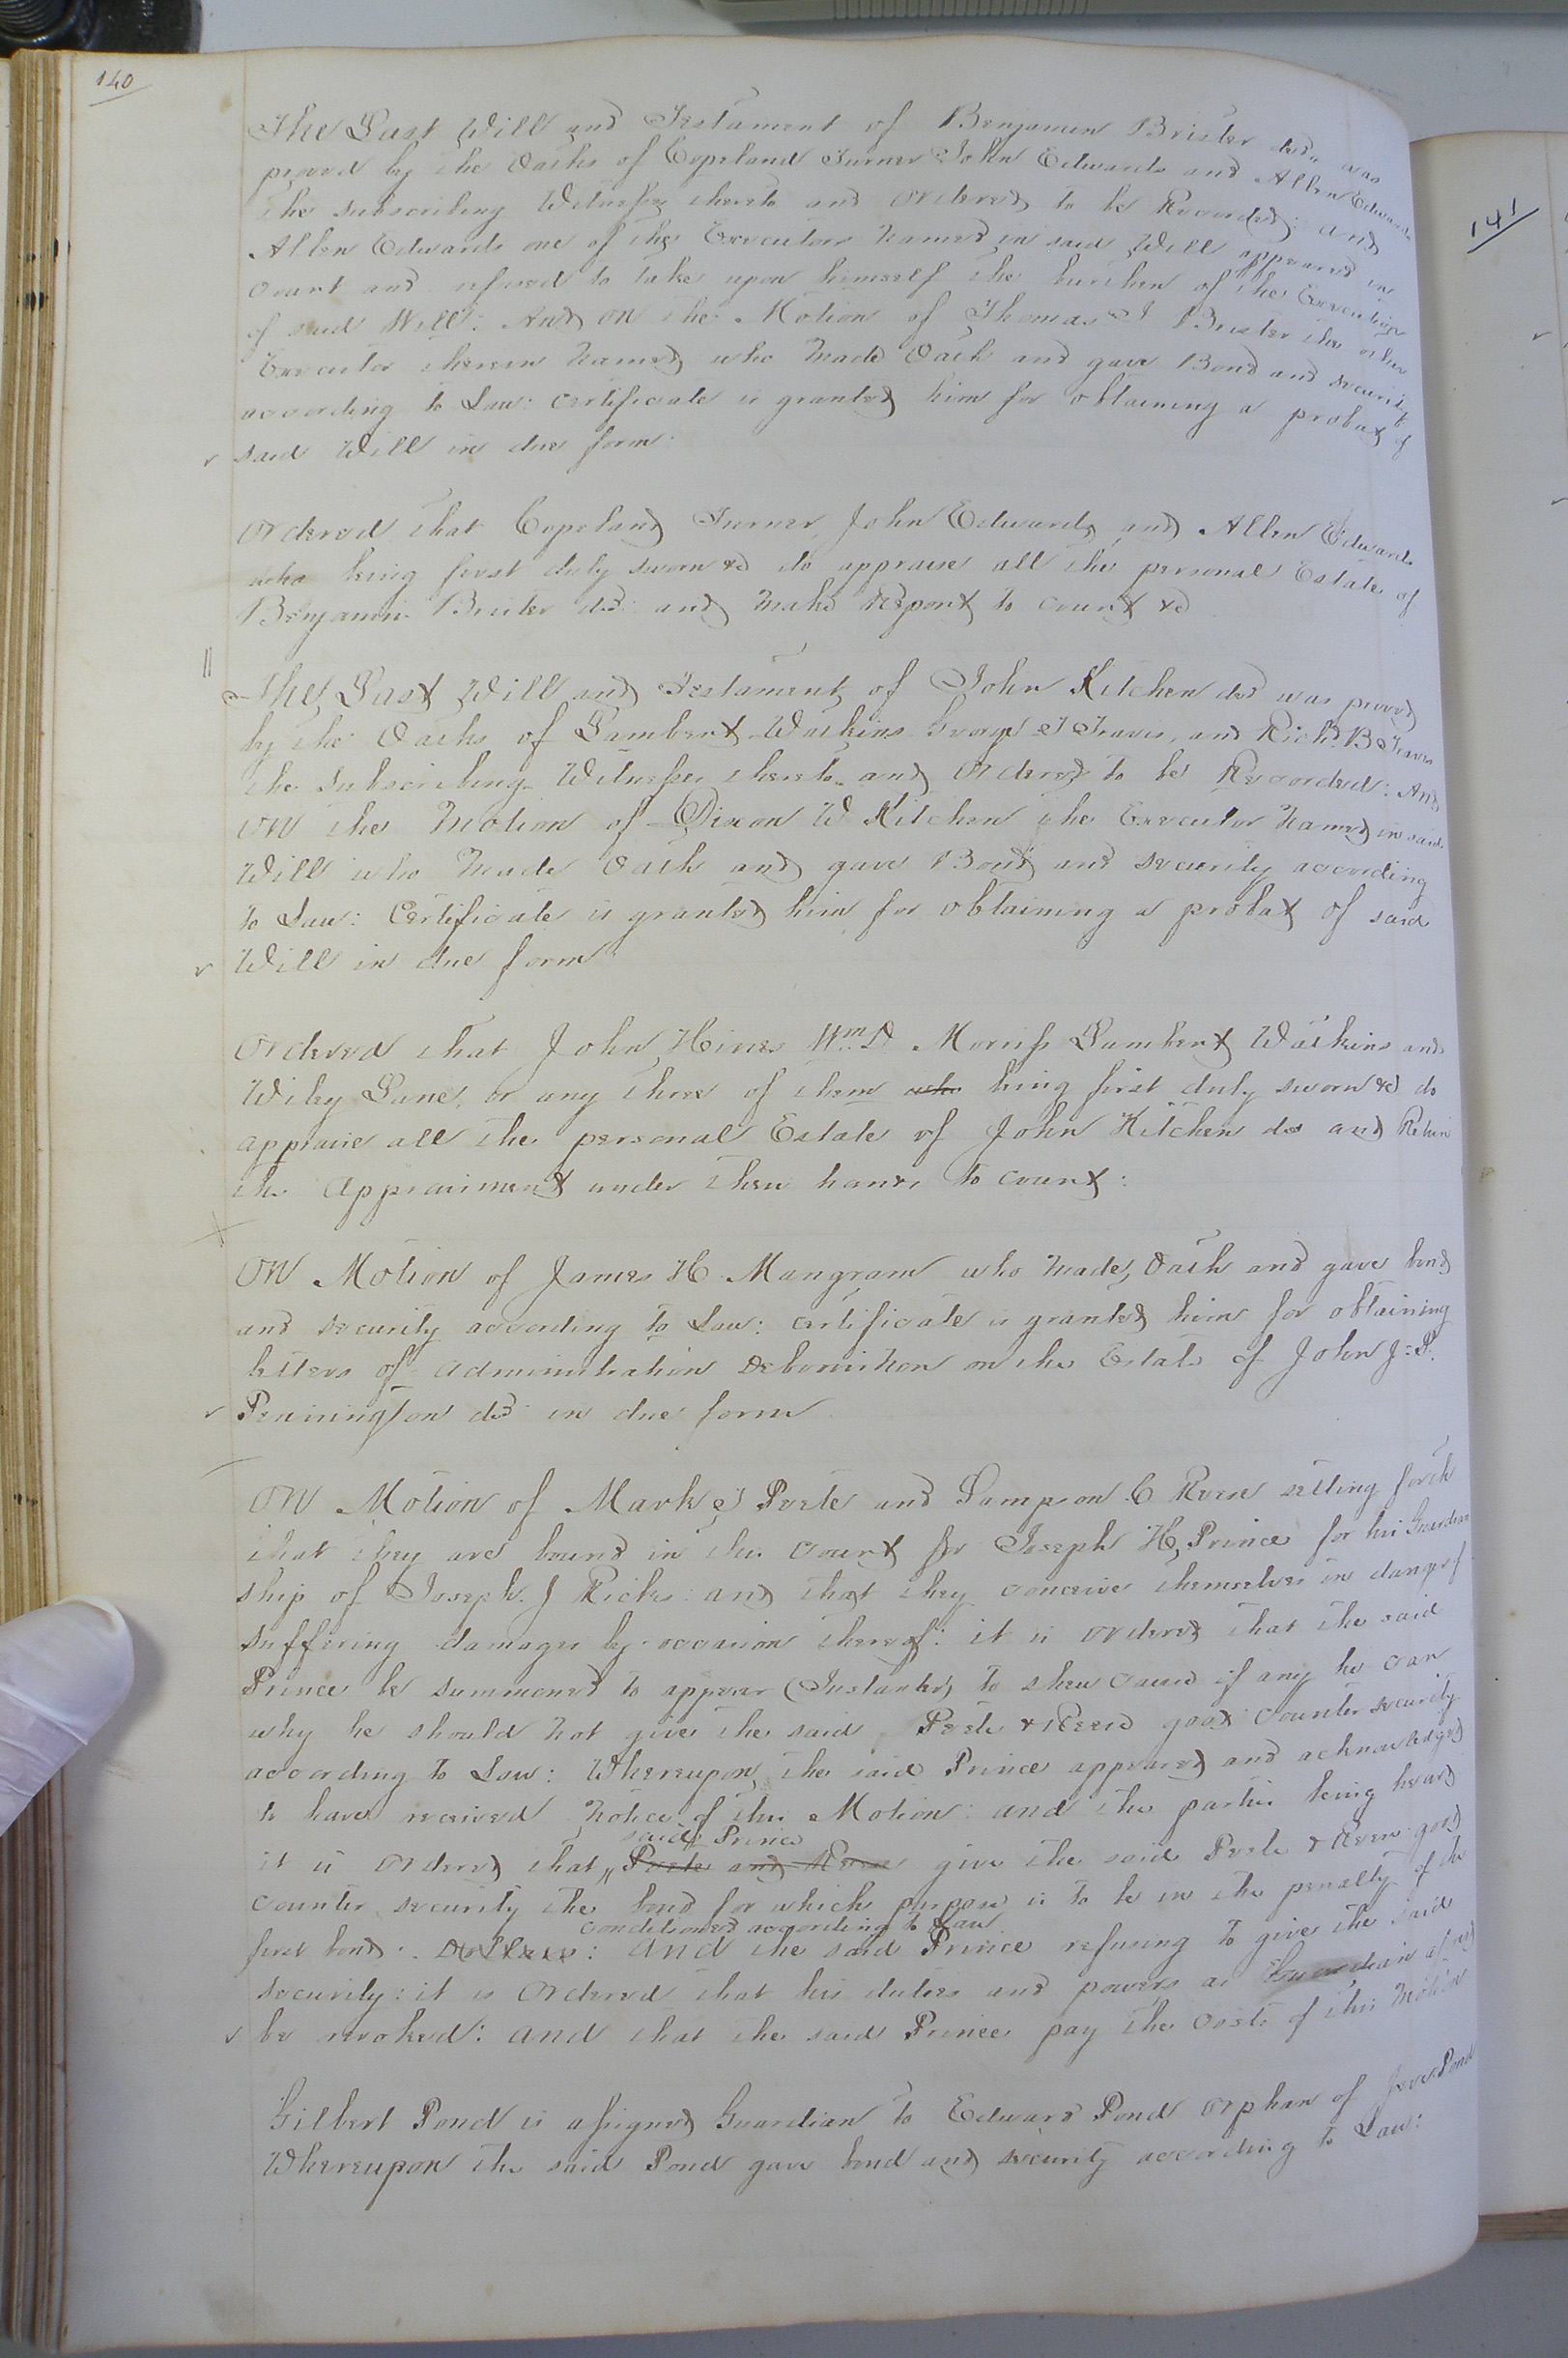 140
The Last Will and Testament of Benjamin Brister decd was
proved by the Oaths of Copeland Turner John Edwards and Allen Edwards
the subscribing Witnesses thereto and ordered to be Recorded: and
Allen Edwards one of the Executors named in said Will appeared in
Court and refused to take upon himself the burthen of the Execution
of said Will: And on the Motion of Thomas J Brister the other
Executor therein named who made Oath and gave Bond and security
according to Law: Certificate is granted him for obtaining a probat of
said Will in due form.
Ordered that Copeland Turner, John Edwards and Allen Edwards
who being first duly sworn &c do appraise all the personal Estate of
Benjamin Brister decd and make Report to court &c
The Last Will and Testament of John Kitchen decd was proved
by the Oaths of Lambert Watkins George T Travis, and Richd B Travis
the subscribing Witnesses thereto and ordered to be Recorded: And
on the motion of Dixon W Kitchen the Executor named in said
Will who made Oath and gave Bond and security according
to Law: Certificate is granted him for obtaining a probat of said
Will in due form
Ordered that John Hines Wm. D. Morriss Lambert Watkins and
Wiley Lane, or any three of them who being first duly sworn &c do
appraise all the personal Estate of John Kitchen decd and Return
the Appraisment under their hands to court:
On Motion of James H Mangram who made Oath and gave bond
and security according to Law: certificate is granted him for obtaining
letters of administration Debonisnon on the Estate of John J. P.
Pennington decd in due form
On Motion of Mark J Pretlow and Sampson C Reese setting forth
that they are bound in this Court for Joseph H, Prince for his Guardian
ship of Joseph J Ricks: and that they conceive themselves in danger of
suffering damages by occasion thereof: it is ordered that the said
Prince be summoned to appear (Instanter) to shew cause if any he can
why he should not give the said & Reese good Counter security
according to Law: Whereupon, the said Prince appeared and acknowledged
to have received notice of this Motion: and the parties being heard
said Prince
it is ordered that and Reese give the said & Reese good
counter security the bond for which purpose is to be in the penalty of the
conditioned according to Law
first bond. Dollars: and the said Prince refusing to give the said
security: it is Ordered that his duties and powers as Guardian aforesd
be revoked: and that the said Prince pay the costs of this motion
Gilbert Pond is assigned Guardian to Edward Pond orphan of Pond
Whereupon the said Pond gave bond and security according to Law:
141